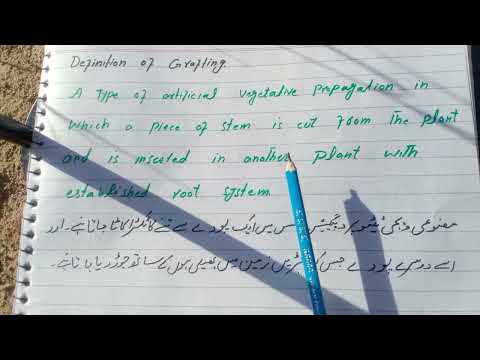 Definition of Grafting.
A Type of artificial vegetative propagation in
which a piece of stem is cut from The plant
and is inserted in another plant with
established root system
مصنوعی ویجی ٹیٹو پروپیگیشن جس میں ایک پودے سے تنے کا ٹکڑا کاٹا جاتا ہے۔ اور
اسے دوسرے پودے جس کی جڑیں زمین میں پھیلی ہوں کے ساتھ جوڑ دیا جاتا ہے۔